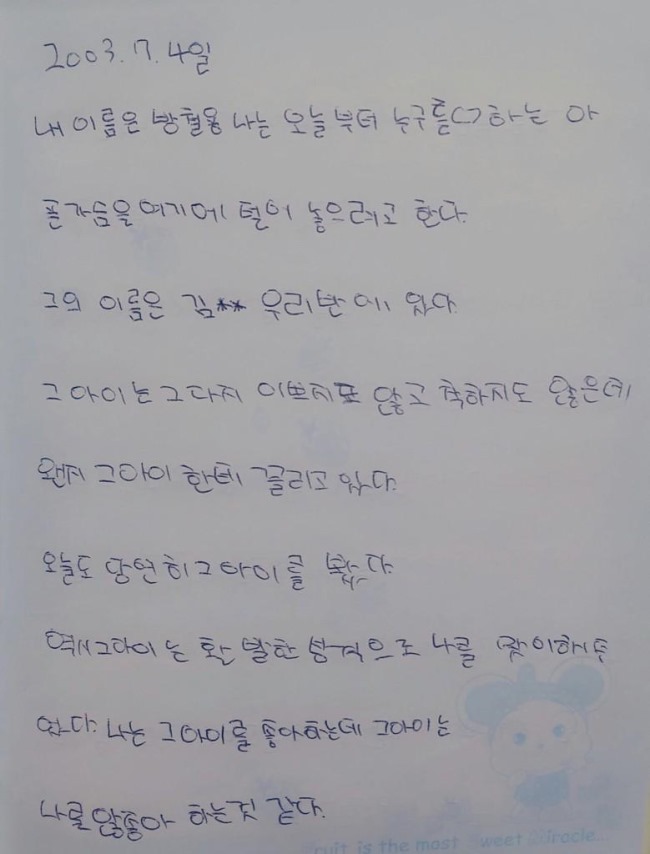 2003.7.4일
내 이름은 방철용 나는 오늘부터 누구를♡하는 아
픈가슴을여기에 털어 놓으려고 한다.
그의 이름은 김** 우리반에 있다
그 아이는그다지 이쁘지도 않고 착하지도 않은데
왠지 그아이 한테 끌리고 있다.
오늘도 당연히그아이를 봤다.
역시그아이는 활발한 성격으로 나를 맞이해주
었다. 나는 그아이를 좋아하는데 그아이는
나를않좋아 하는것 같다.
ruit is the most Sweet Miracle...